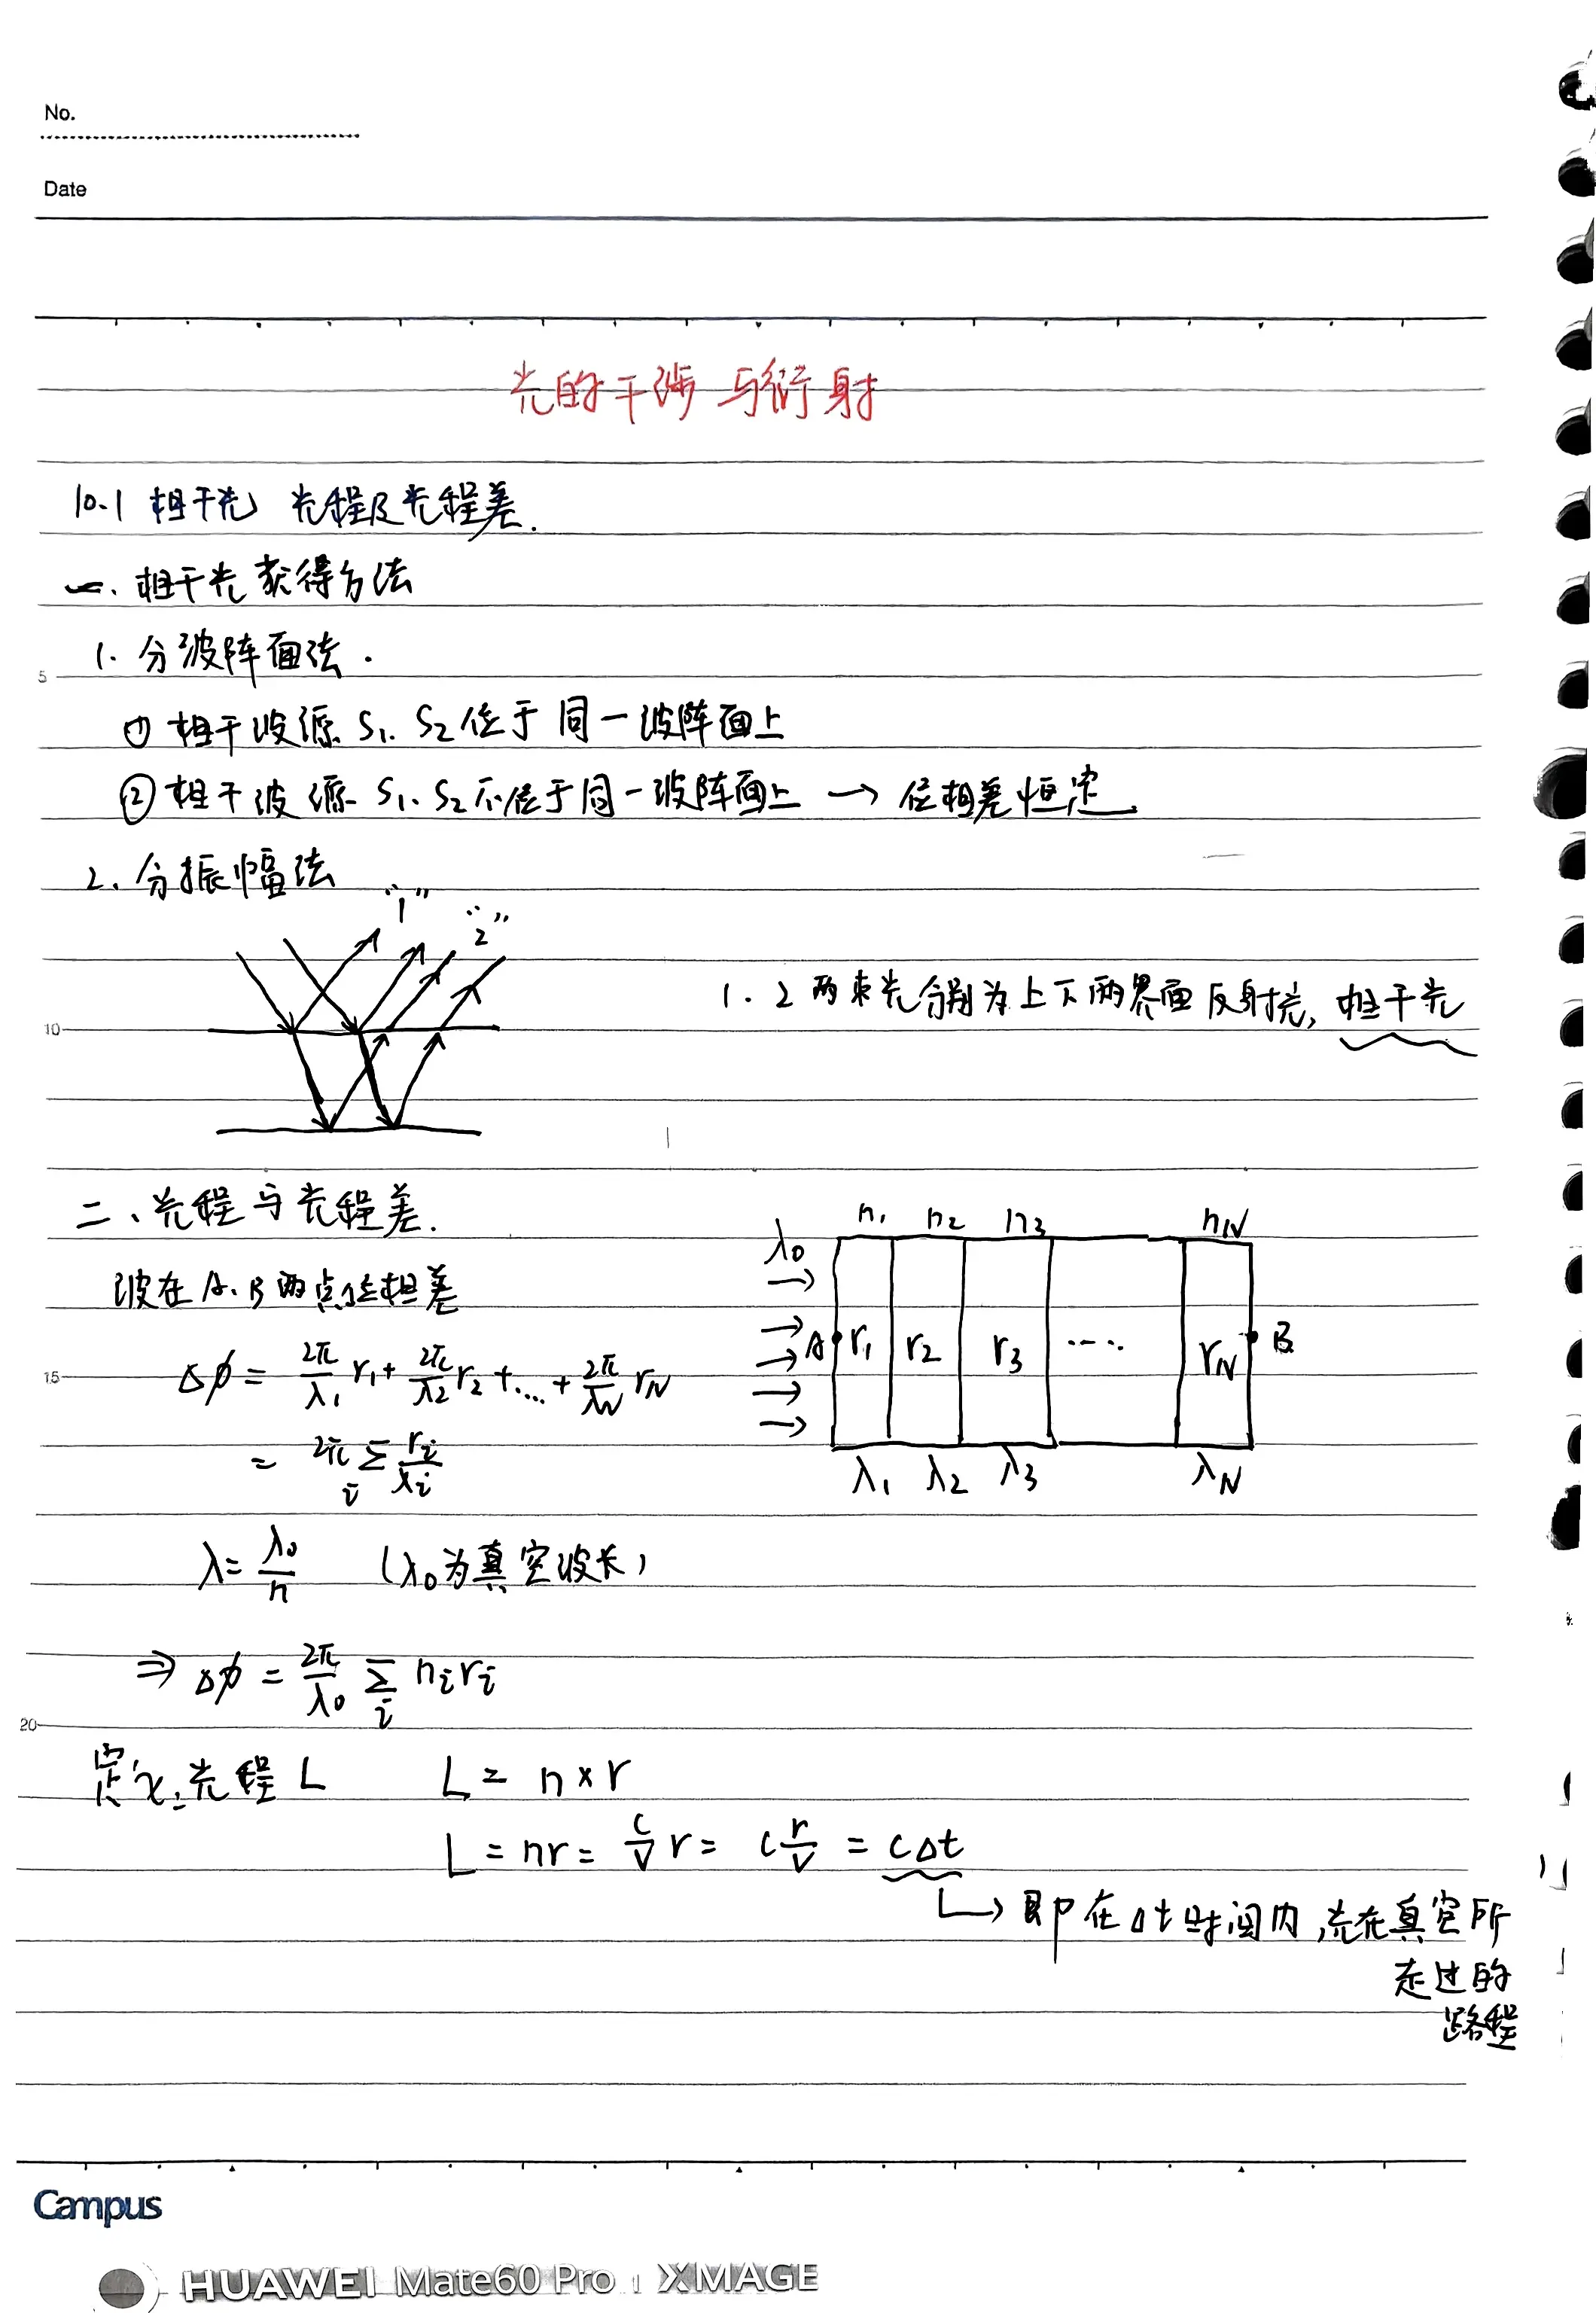 No.
Date
光的干涉与衍射
10.1 相干光 光程及光程差.
一. 相干光获得方法
1. 分波阵面法.
① 相干波源 S₁. S₂ 位于同一波阵面上
② 相干波源 S₁. S₂ 不位于同一波阵面上 → 位相差恒定
2. 分振幅法
"1" "2"
1. 2 两束光分别为上下两界面反射光, 相干光
10
二、光程与光程差.
n₁ n₂ n₃ nN
λ₀
波在 A. B 两点位相差
A r₁ r₂ r₃ .... rN B
15 Δφ = 2π/λ₁ r₁ + 2π/λ₂ r₂ + ... + 2π/λN rN
= 2π Σᵢ rᵢ/λᵢ
λ₁ λ₂ λ₃ λN
λ = λ₀/n (λ₀为真空波长)
⇒ Δφ = 2π/λ₀ Σᵢ nᵢrᵢ
20
定义: 光程 L L = n × r
L = nr = c/v r = c r/v = cΔt
→ 即在Δt时间内, 光在真空所
走过的
路程
5
Campus
HUAWEI Mate60 Pro | XMAGE